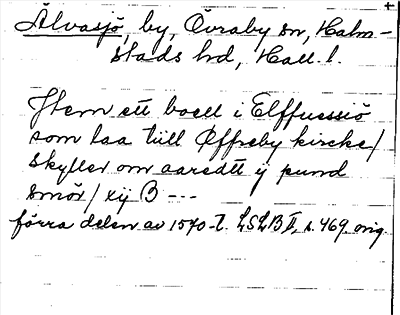 Älvasjö, by, Övraby sn, Halm-
stads hd, Hall. l.
Item ett boell i Elffuessiö
som laa tiill Øffreby kircke/
skyller om aaredtt ij pund
smör/ xij B ---
förra delen av 1570-t. LSLB II, s. 469. orig.